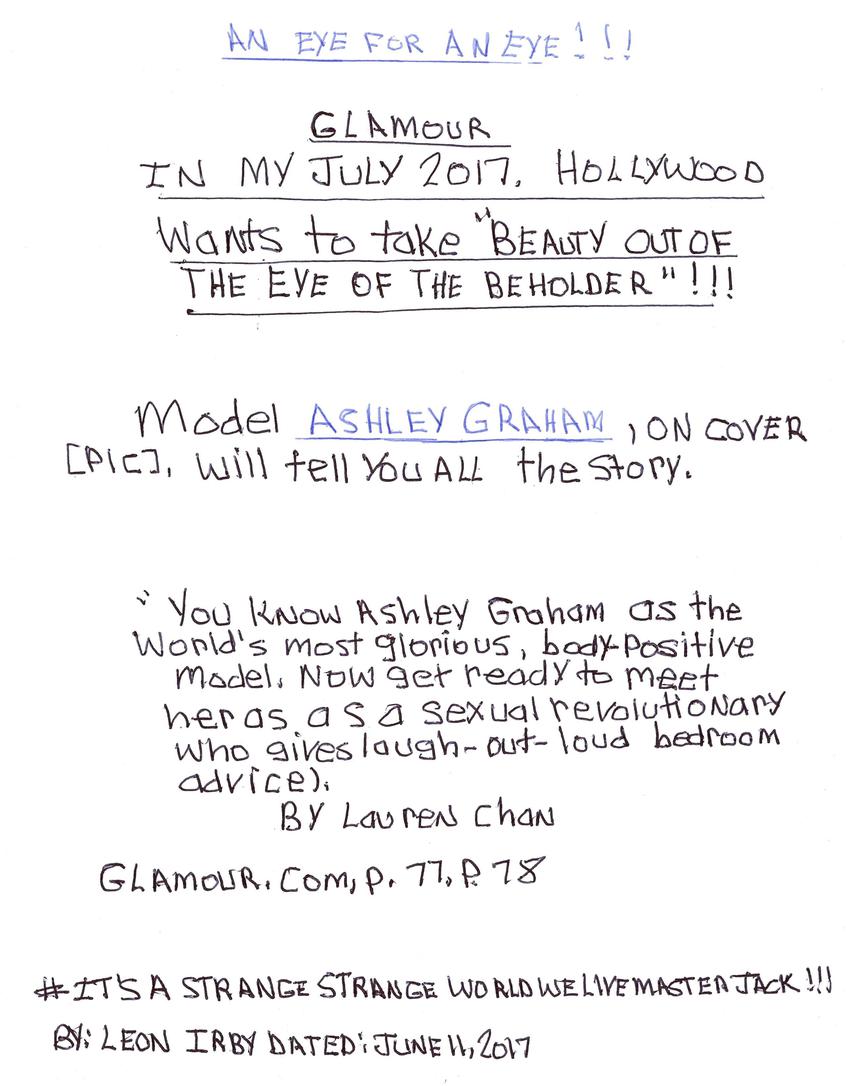 AN EYE FOR AN EYE!!!
GLAMOUR
IN MY JULY 2017, HOLLYWOOD
Wants to take "BEAUTY OUT OF
THE EYE OF THE BEHOLDER"!!!
Model ASHLEY GRAHAM, ON COVER
[PIC], will tell YOU ALL the Story.
"You know Ashley Graham as the
World's most glorious, body-positive
model. Now get ready to meet
her as as a sexual revolutionary
who gives laugh-out-loud bedroom
advice).
BY Lauren Chan
GLAMOUR.COM, P. 77, P. 78
#IT'S A STRANGE STRANGE WORLD WE LIVE MASTER JACK!!!
BY: LEON IRBY DATED: JUNE 11, 2017